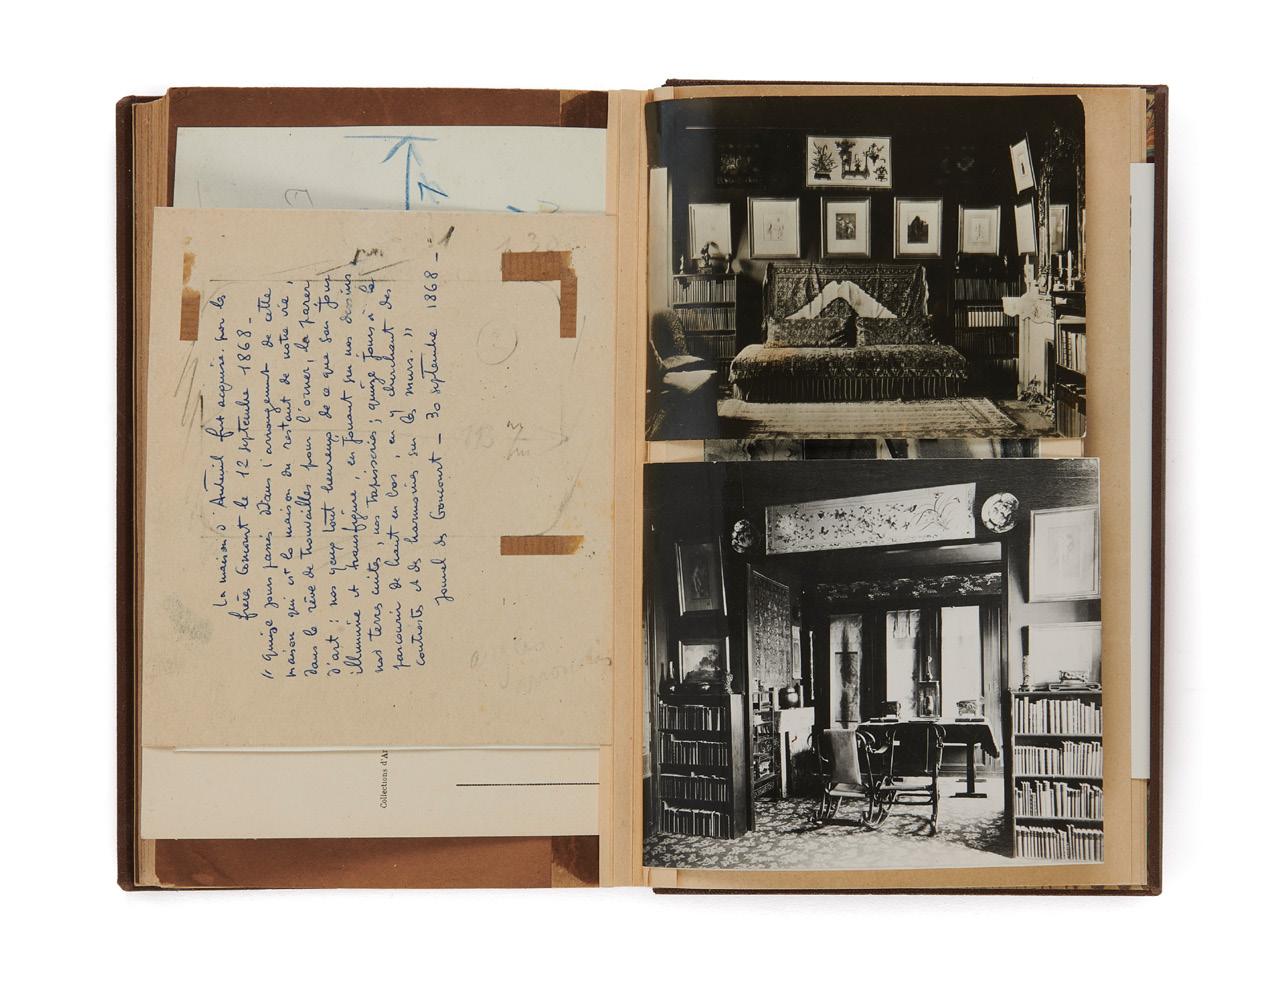 La maison d'Auteuil fut acquise par les
frères Goncourt le 12 septembre 1868 -
" quinze jours passés dans l'arrangement de cette
maison qui est la maison du restant de notre vie,
dans le rêve de trouvailles pour l'orner, la parer
d'art : nos yeux tout heureux de ce que son jour
illumine et transfigure, en jouant sur nos dessins
nos terres cuites, nos tapisseries ; quinze jours à la
parcourir de haut en bas, en y cherchant des
contrastes et des harmonies sur les murs. "
Journal des Goncourt - 30 septembre 1868 -
Collections d'Ar